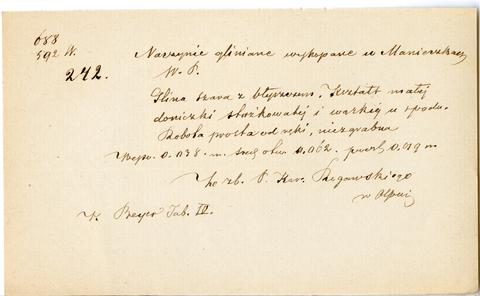 688
592 W.
242.
Naczynie gliniane wykopane w Manieczkach
W. P.
Glina szara z błyszczem. Kształt małej
doniczki stożkowatej i wązkiéj u spodu.
Robota prosta od ręki, niezgrabna
Wyso. 0.038. m. śred. otw. 0.062. 0.019 m
Ze zb. P. Kar. Rogawskiego
w Olpini
K. Beyer Tab. IV.